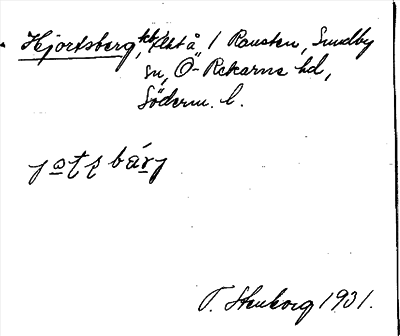 Hjortsberg, tb, lht å 1 Rausten, Sundby
sn, Ö-Rekarne hd,
Söderm. l.
jɷtsbärj
T. Stenborg 1931.